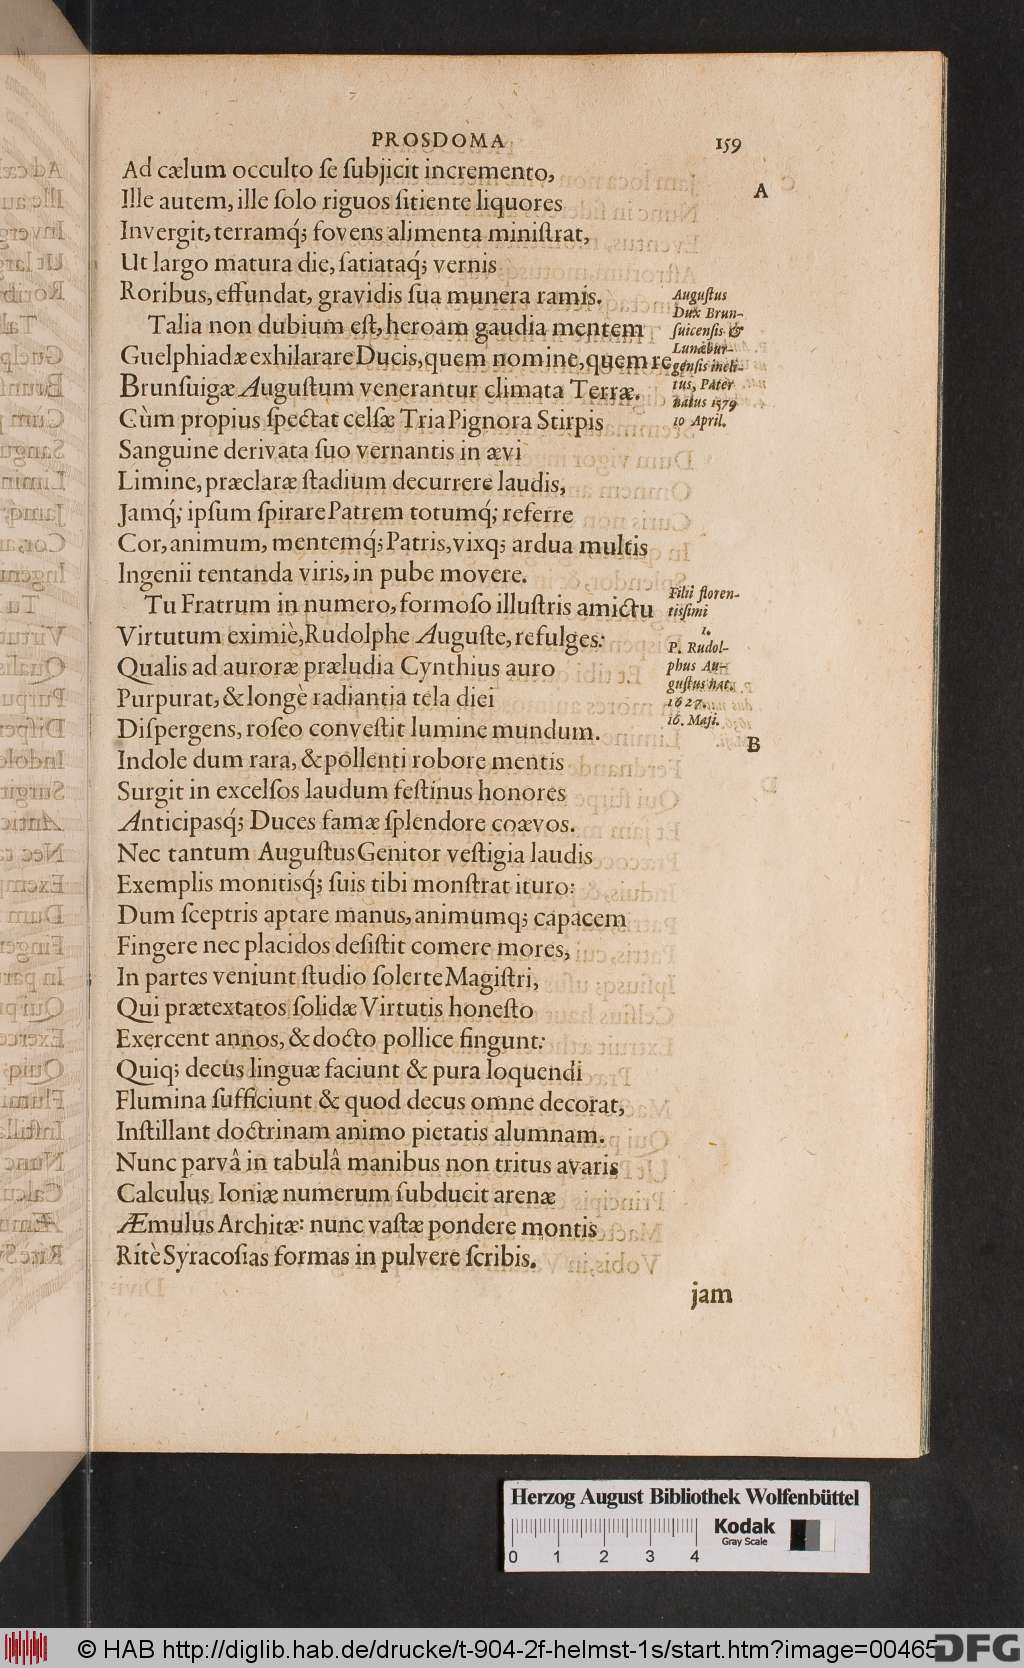 PROSDOMA 159
Ad cælum occulto ſe ſubjicit incremento,
A
Ille autem, ille ſolo riguos ſitiente liquores
Invergit, terramq́; fovens alimenta miniſtrat,
Ut largo matura die, ſatiataq́; vernis
Roribus, effundat, gravidis ſua munera ramis.
Talia non dubium eſt, heroam gaudia mentem
Guelphiadæ exhilarare Ducis, quem nomine, quem re
Brunſuigæ Auguſtum venerantur climata Terræ.
Auguſtus
Dux Brun-
ſuicenſis &
Lunæbur-
genſis incli-
tus, Pater
natus 1579
10 April.
Cùm propius ſpectat celſæ Tria Pignora Stirpis
Sanguine derivata ſuo vernantis in ævi
Limine, præclaræ ſtadium decurrere laudis,
Jamq́; ipſum ſpirare Patrem totumq́; referre
Cor, animum, mentemq́; Patris, vixq; ardua multis
Ingenii tentanda viris, in pube movere.
Tu Fratrum in numero, formoſo illuſtris amictu
Virtutum eximiè, Rudolphe Auguſte, refulges:
Filii floren-
tiſſimi
1.
P. Rudol-
phus Au-
guſtus nat.
1627.
16. Maji.
Qualis ad auroræ præludia Cynthius auro
Purpurat, & longè radiantia tela diei
Diſpergens, roſeo conveſtit lumine mundum.
B
Indole dum rara, & pollenti robore mentis
Surgit in excelſos laudum feſtinus honores
Anticipasq́; Duces famæ ſplendore coævos.
Nec tantum Auguſtus Genitor veſtigia laudis
Exemplis monitisq́; ſuis tibi monſtrat ituro:
Dum ſceptris aptare manus, animumq; capacem
Fingere nec placidos deſiſtit comere mores,
In partes veniunt ſtudio ſolerte Magiſtri,
Qui prætextatos ſolidæ Virtutis honeſto
Exercent annos, & docto pollice fingunt:
Quiq; decus linguæ faciunt & pura loquendi
Flumina ſufficiunt & quod decus omne decorat,
Inſtillant doctrinam animo pietatis alumnam.
Nunc parvâ in tabulâ manibus non tritus avaris
Calculus Ioniæ numerum ſubducit arenæ
Æmulus Architæ: nunc vaſtæ pondere montis
Rítè Syracoſias formas in pulvere ſcribis.
jam
Herzog August Bibliothek Wolfenbüttel
Kodak
Gray Scale
0 1 2 3 4
© HAB http://diglib.hab.de/drucke/t-904-2f-helmst-1s/start.htm?image=00465
DFG